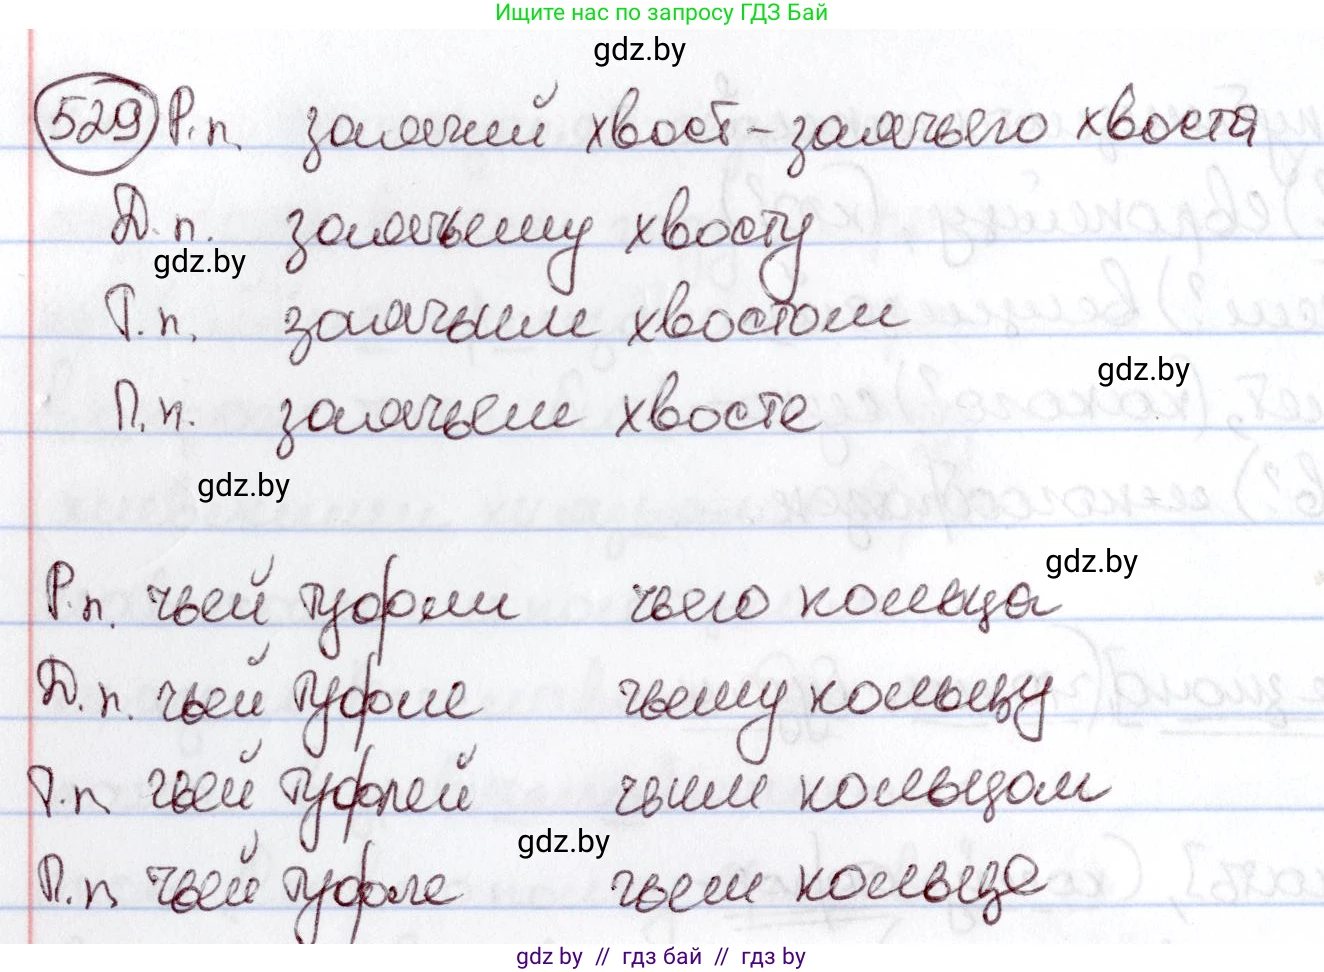 Ищите нас по запросу ГДЗ Бай
gdz.by
529 Р.п. заячий хвост - заячьего хвоста
Д.п. заячьему хвосту
gdz.by
Т.п. заячьим хвостом
gdz.by
П.п. заячьем хвосте
gdz.by
gdz.by
Р.п. чьей туфли чьего кольца
Д.п. чьей туфле чьему кольцу
Т.п. чьей туфлей чьим кольцом
gdz.by
П.п. чьей туфле чьем кольце
gdz by // гдз бай // гдз by